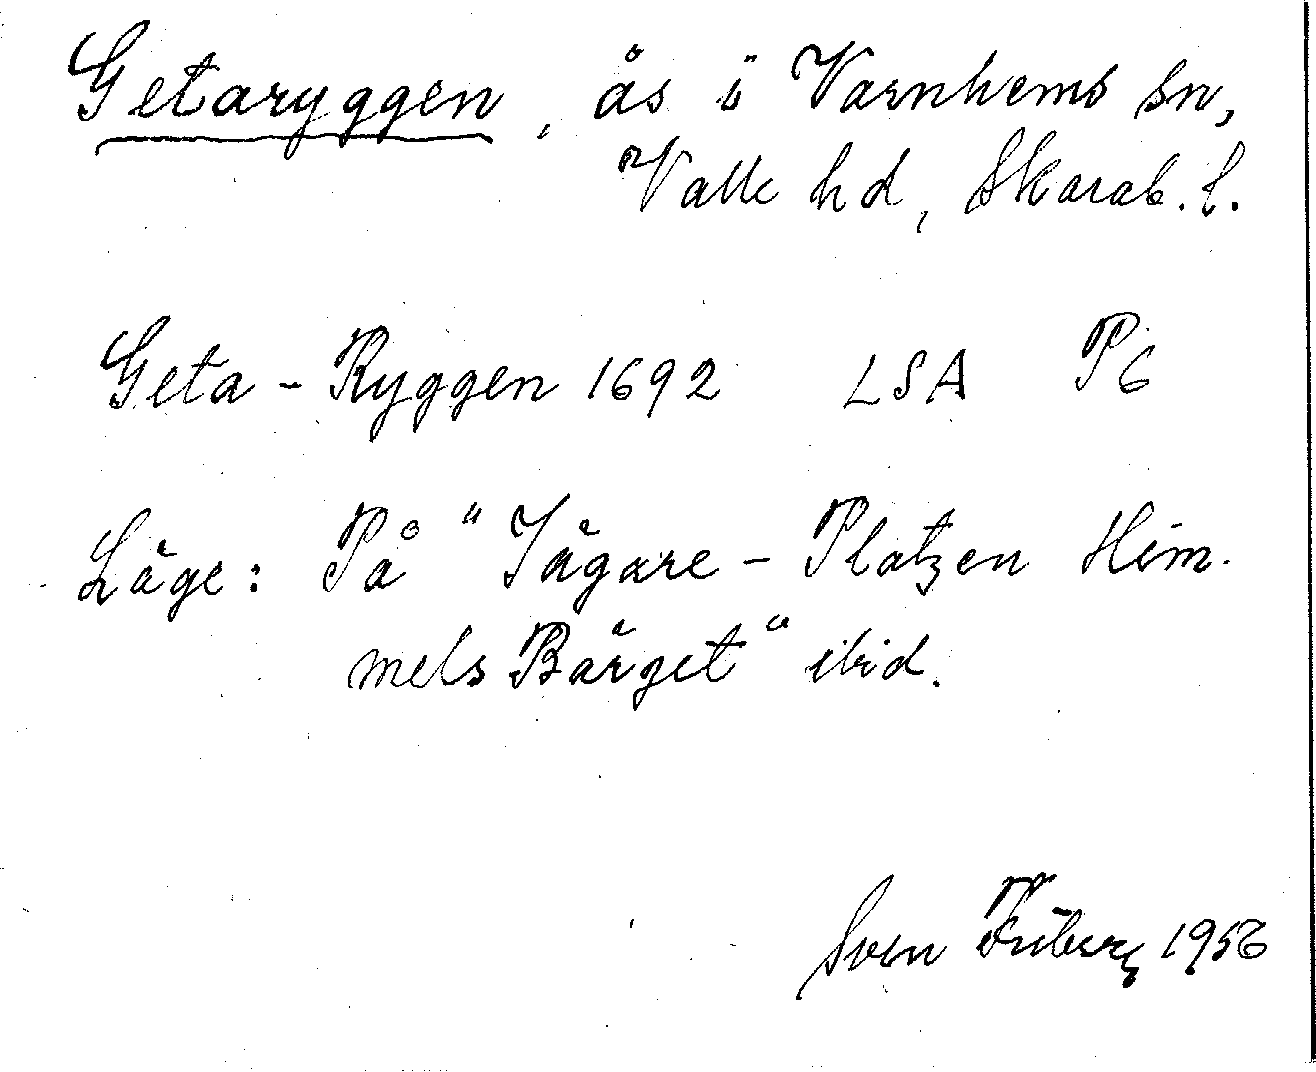 Getaryggen, ås i Varnhems sn,
Valle hd, Skarab. l.
Geta - Ryggen 1692 LSA P6
Läge: På "Jägare - Platzen Him-
mels Bärget" ibid.
Sven Friberg 1956